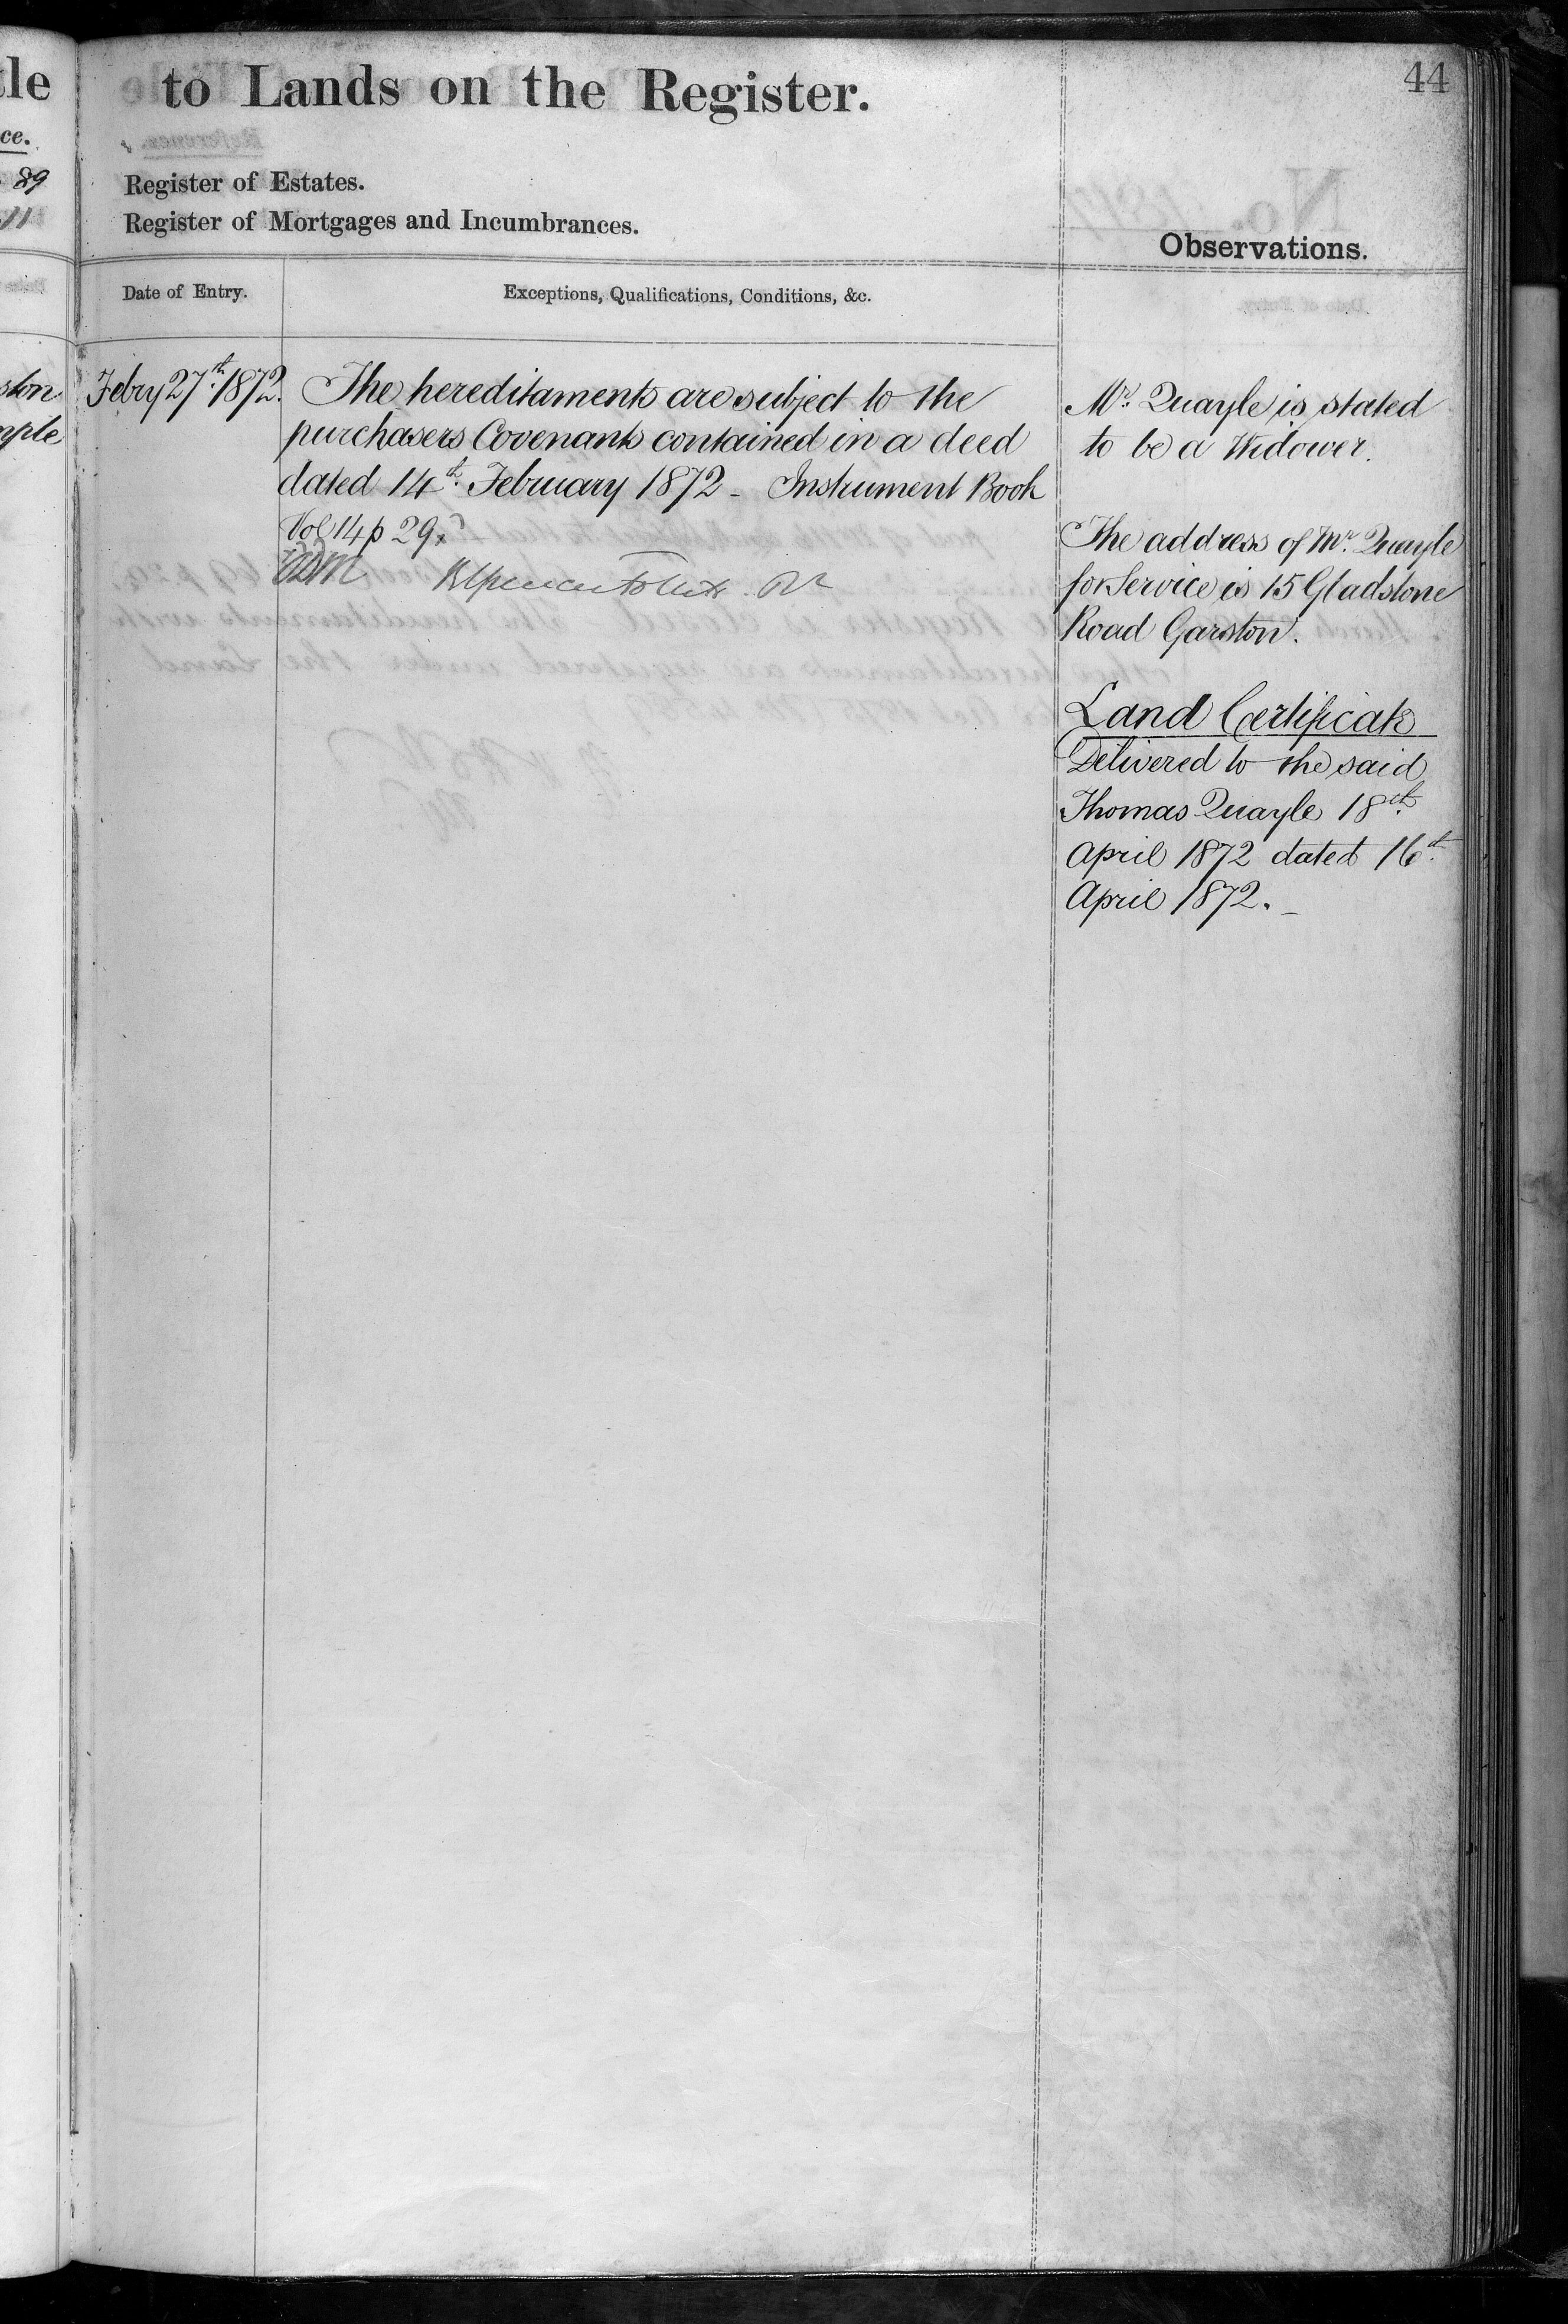 44
to Lands on the Register.
Register of Estates.
Register of Mortgages and Incumbrances.
Observations.
Date of Entry.
Exceptions, Qualifications, Conditions, &c.
Febry 27th. 1872.
The hereditaments are subject to the
purchasers Covenants contained in a deed
dated 14th. February 1872 - Instrument Book
Vol 14 p 29.
Mr. Quayle is stated
to be a Widower.
The address of Mr. Quayle
for Service is 15 Gladstone
Road Garston.
Land Certificate
Delivered to the said
Thomas Quayle 18th.
April 1872 dated 16th.
April 1872. -
tle
ce.
89
11
ston
mple